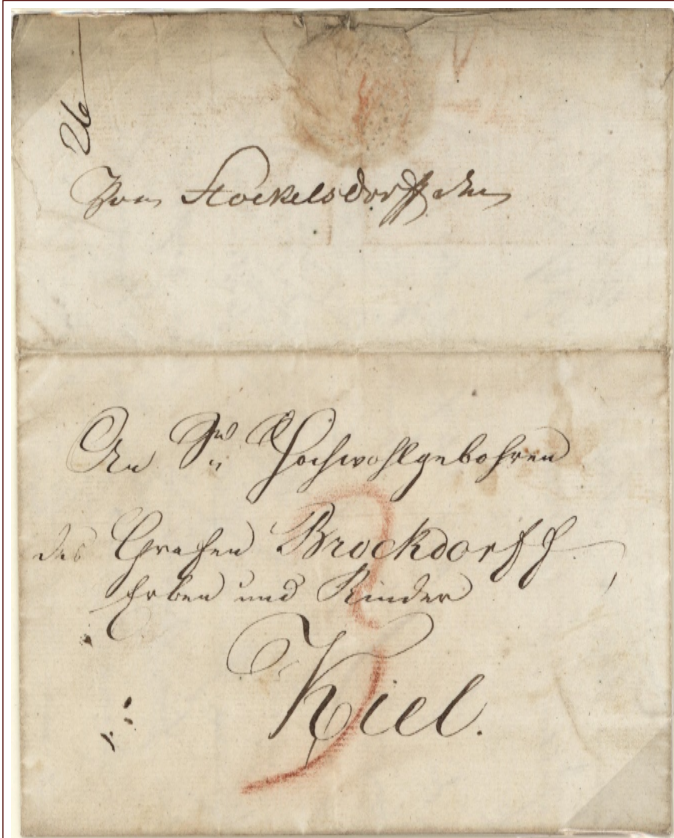 26
Von Stockelsdorff
An Sr Hochwohlgebohren
des Grafen Brockdorff
Erben und Kinder
Kiel.
3